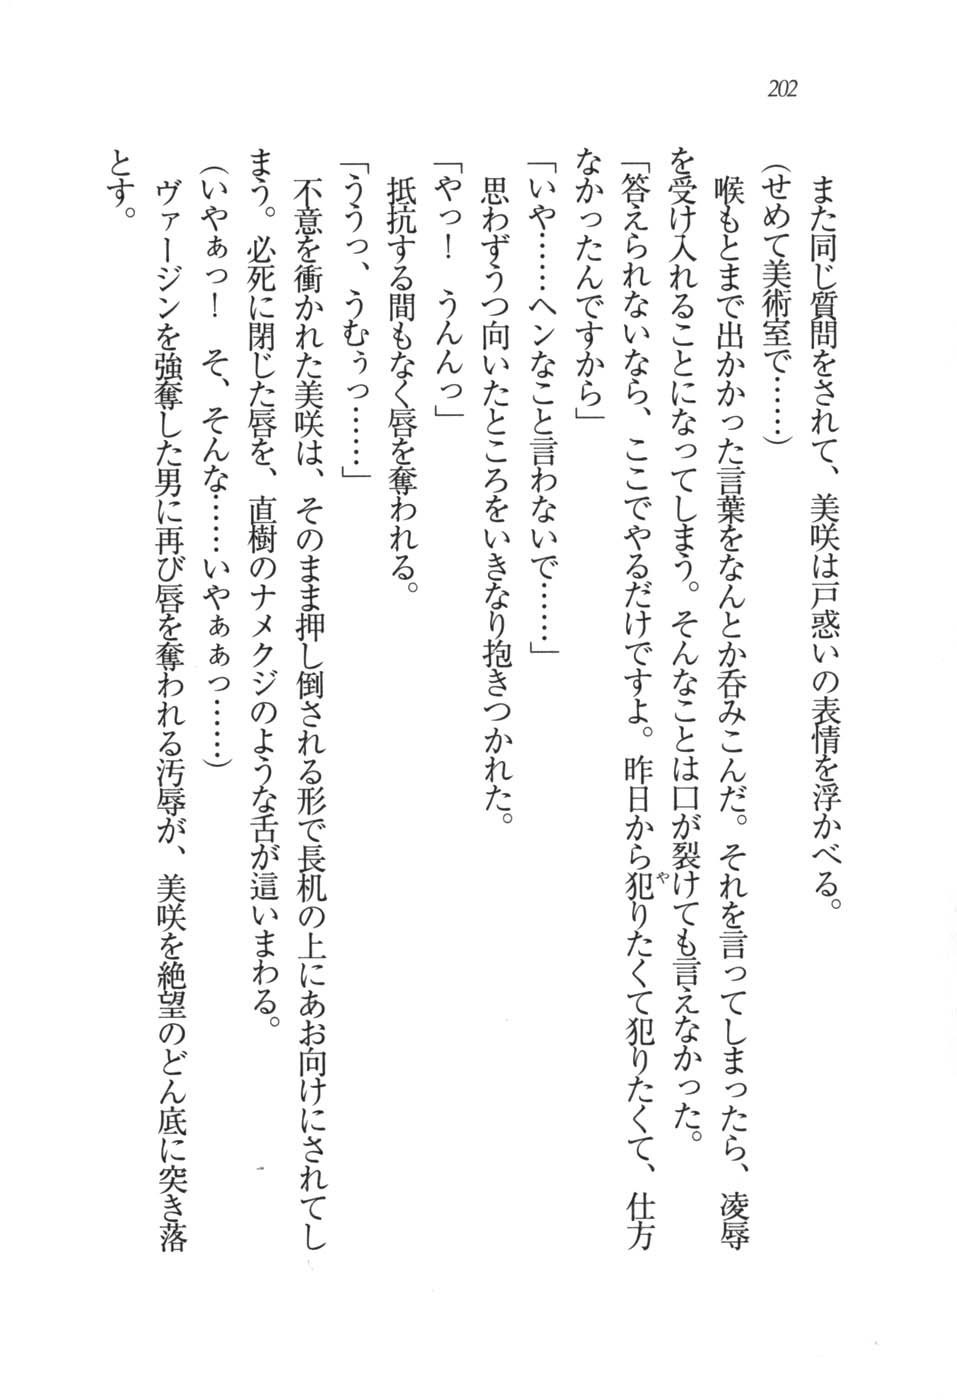 202
また同じ質問をされて、美咲は戸惑いの表情を浮かべる。
(せめて美術室で……)
喉もとまで出かかった言葉をなんとか呑みこんだ。それを言ってしまったら、凌辱
を受け入れることになってしまう。そんなことは口が裂けても言えなかった。
「答えられないなら、ここでやるだけですよ。昨日から犯りたくて犯りたくて、仕方
や
なかったんですから」
「いや……ヘンなこと言わないで……」
思わずうつ向いたところをいきなり抱きつかれた。
「やっ！　うんんっ」
抵抗する間もなく唇を奪われる。
「ううっ、うむぅっ……」
不意を衝かれた美咲は、そのまま押し倒される形で長机の上にあお向けにされてし
まう。必死に閉じた唇を、直樹のナメクジのような舌が這いまわる。
(いやぁっ！　そ、そんな……いやぁぁっ……)
ヴァージンを強奪した男に再び唇を奪われる汚辱が、美咲を絶望のどん底に突き落
とす。